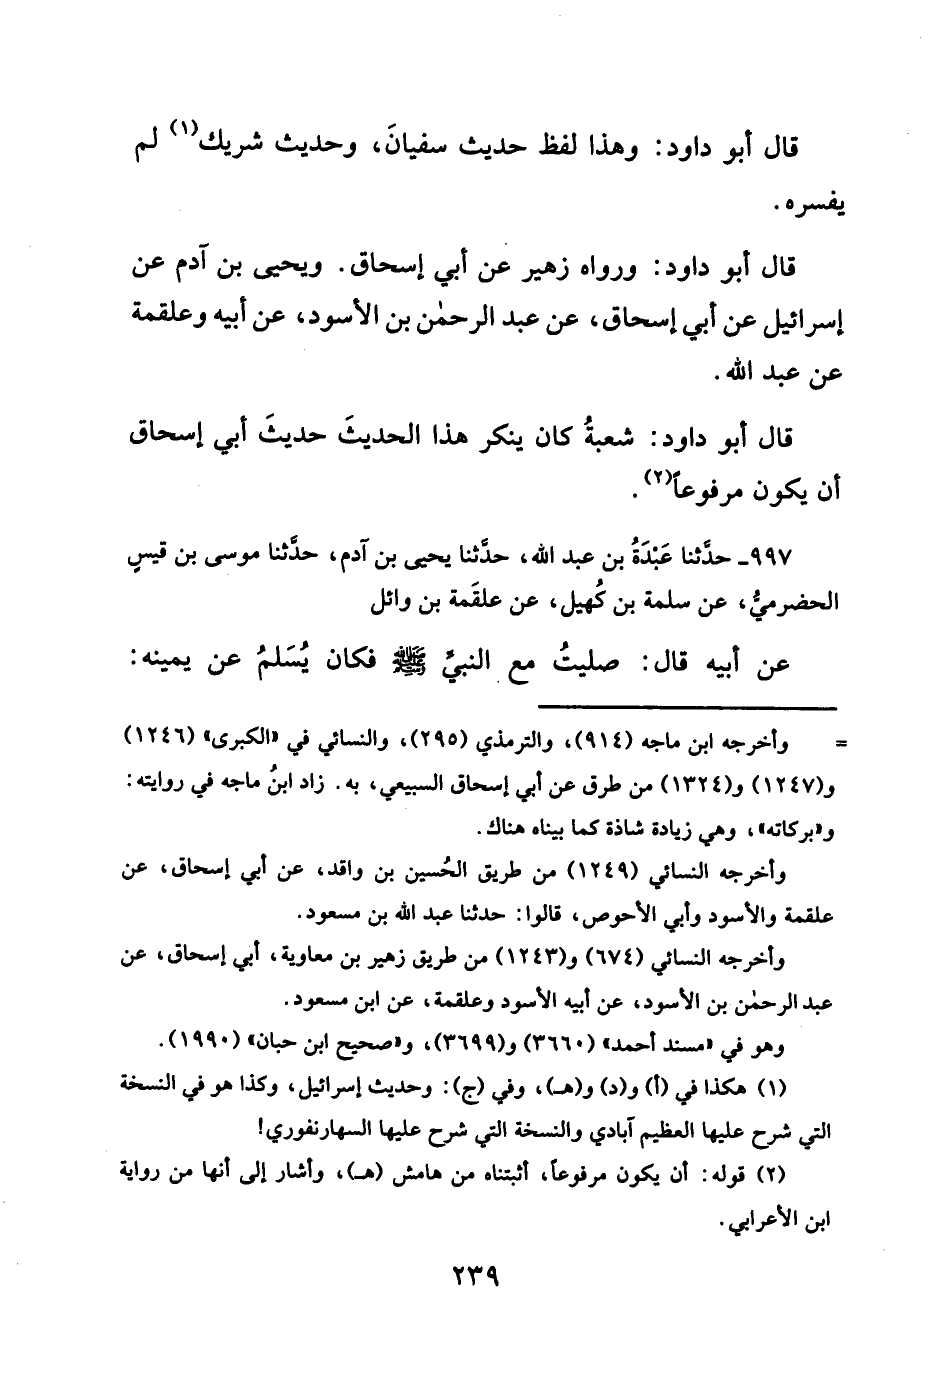 قال أبو داود: وهذا لفظ حديث سفيانَ، وحديث شريك(١) لم
يفسره.
قال أبو داود: ورواه زهير عن أبي إسحاق. ويحيى بن آدم عن
إسرائيل عن أبي إسحاق، عن عبد الرحمٰن بن الأسود، عن أبيه وعلقمة
عن عبد الله.
قال أبو داود: شعبةُ كان ينكر هذا الحديثَ حديثَ أبي إسحاق
أن يكون مرفوعاً(٢).
٩٩٧ـ حدَّثنا عَبْدَةُ بن عبد الله، حدَّثنا يحيى بن آدم، حدَّثنا موسى بن قيسٍ
الحضرميُّ، عن سلمة بن كُهيل، عن علقَمة بن وائل
عن أبيه قال: صليتُ مع النبيِّ ﷺ فكان يُسَلمُ عن يمينه:
= وأخرجه ابن ماجه (٩١٤)، والترمذي (٢٩٥)، والنسائي في «الكبرى» (١٢٤٦)
و(١٢٤٧) و(١٣٢٤) من طرق عن أبي إسحاق السبيعي، به. زاد ابنُ ماجه في روايته:
و«بركاته»، وهي زيادة شاذة كما بيناه هناك.
وأخرجه النسائي (١٢٤٩) من طريق الحُسين بن واقد، عن أبي إسحاق، عن
علقمة والأسود وأبي الأحوص، قالوا: حدثنا عبد الله بن مسعود.
وأخرجه النسائي (٦٧٤) و(١٢٤٣) من طريق زهير بن معاوية، أبي إسحاق، عن
عبد الرحمٰن بن الأسود، عن أبيه الأسود وعلقمة، عن ابن مسعود.
وهو في «مسند أحمد» (٣٦٦٠) و(٣٦٩٩)، و«صحيح ابن حبان» (١٩٩٠).
(١) هكذا في (أ) و(د) و(هـ)، وفي (ج): وحديث إسرائيل، وكذا هو في النسخة
التي شرح عليها العظيم آبادي والنسخة التي شرح عليها السهارنفوري!
(٢) قوله: أن يكون مرفوعاً، أثبتناه من هامش (هـ)، وأشار إلى أنها من رواية
ابن الأعرابي.
٢٣٩